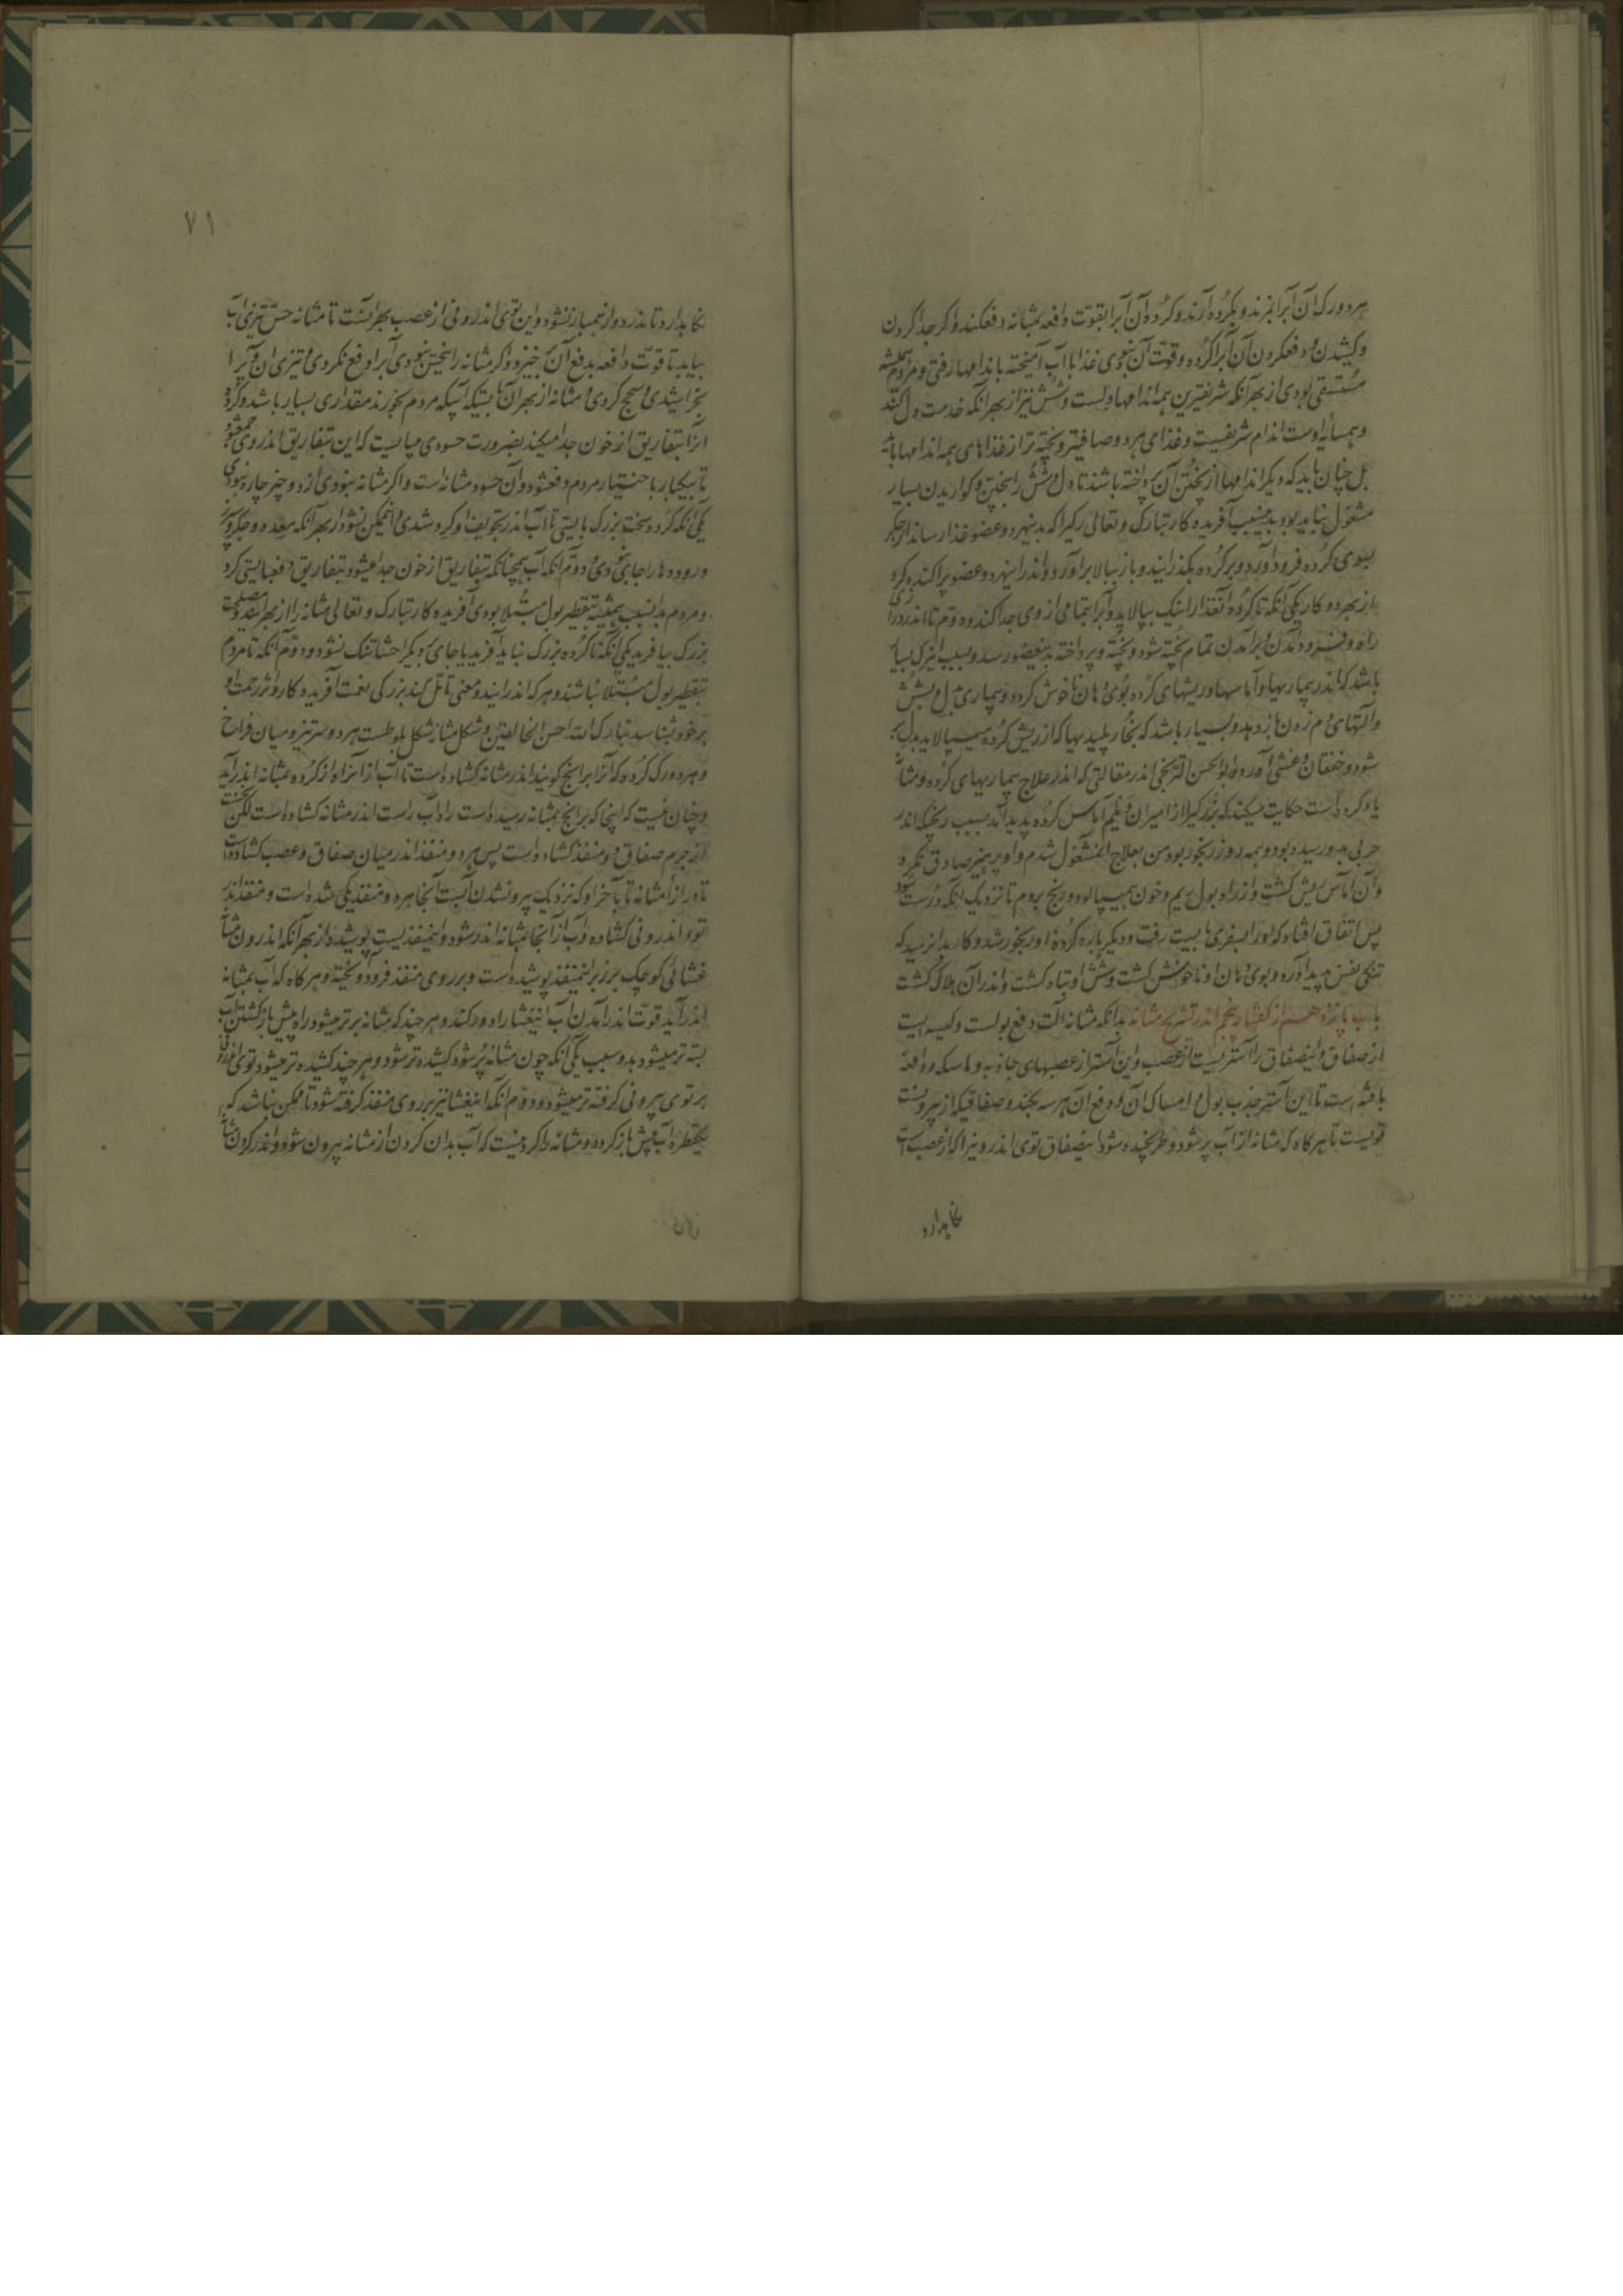 هر دو رک آن آبرا بمزند و بکرده آرند و کرده آن آبرا بقوت دافعه بمثانه دفعکند و اکر جدا کردن
و کشیدن و دفعکردن آن آبرا کرده و قوت آن نبودی غذا با آب آمیخته باندامها رفتی و مردم همیشه
مستسقی بودی از بهر آنکه شریفترین همه اندامها دلست و شش نیز از بهر آنکه خدمت دل کند
و همسایه اوست اندام شریفیست و غذای هر دو صافیتر و پخته تر از غذاهای همه اندامها باید
بل چنان باید که دیکر اندامها از پختن آن پرداخته باشند تا دل و شش را بپختن و کواریدن بسیار
مشغول نباید بود بدینسبب آفریده کار تبارک و تعالی رکیرا که بدینهر دو عضو غذا رساند از جکر
بسوی کرده فرود آورد و بر کرده بکذرانید و باز ببالا برآورد و اندر اینهر دو عضو پراکنده کرد
از بهر دو کار یکی آنکه تا کرده آنغذا را نیک بپالاید و آبرا بتمامی از وی جدا کند و دوم تا اندر درازی
راه و فرود آمدن و برآمدن تمام پخته شود و پخته و پرداخته بدینعضو رسد و بسبب اینرک بسیار
باشد که اندر بیماریها و آماسها و ریشهای کرده بوی دهان ناخوش کردد و بیماری بدل و بشش
و آلتهای دم زدن باز دهد و بسیار باشد که بخار پلیدیها که از ریش کرده میپالاید بدل بر
شود و خفقان و غشی آورد و ابوالحسن الترنجی اندر مقالتی که اندر علاج بیماریهای کرده و مثانه
یاد کرده است حکایت میکند که بزرکیرا از امیران دیلم آماس کرده پدید آمد بسبب رنجیکه اندر
حربی بدو رسیده بود و همه روز رنجور بود من بعلاج او مشغول شدم و او پرهیز صادق نکرد
و آن آماس ریش کشت و از راه بول ریم و خون همیپالود و رنج بردم تا نزدیک آنکه درست شود
پس اتفاق افتاد که او را بسفری بایست رفت و دیکر باره کرده او رنجور شد و کار بدانرسید که
تنکی نفس پدید آورد و بوی دهان او ناخوش کشت و شش او تباه کشت و اندر آن هلاک کشت
باب پانزدهم از کفتار پنجم اندر تشریح مثانه بدانکه مثانه آلت دفع بولست و کیسه ایست
از صفاق و اینصفاق را آستریست از عصب و این آستر از عصبهای جاذبه و ماسکه و دافعه
بافته است تا این آستر جذب بول و امساک آن و دفع آن هر سه بکند و صفاقیکه از بیرونست
قویست تا هر کاه که مثانه از آب پر شود و طرنجیده شود اینصفاق توی اندرونیرا که از عصب است
نکاهدارد
۷۹
نکاهدارد تا ندرد و از هم باز نشود و این توی اندرونی از عصب بهر آنست تا مثانه حس تیزی آب
بیابد تا قوت دافعه بدفع آن برخیزد و اکر مثانه را این حس نبودی آبرا دفع نکردی و تیزی آن ویرا
بخراشیدی و سحج کردی و مثانه از بهر آن بایستکه آبیکه مردم بخورند مقداری بسیار باشد و کرده
آنرا بتفاریق از خون جدا میکند بضرورت حسودی میبایست که این بتفاریق اندر وی جمع میشود
تا بیکبار باختیار مردم دفعشود و آن حسود مثانه است و اکر مثانه نبودی از دو چیز چاره نبودی
یکی آنکه کرده سخت بزرک بایستی تا آب اندر تجویف او کرد شدی و این ممکن نشود از بهر آنکه معده و جکر و سپرز
و روده ها را جای نبودی و دوم آنکه آب همچنانکه بتفاریق از خون جدا میشود بتفاریق دفعبایستی کرد
و مردم بدینسبب همیشه بتقطیر بول مبتلا بودی آفریده کار تبارک و تعالی مثانه را از بهر این دو مصلحت
بزرک بیافرید یکی آنکه تا کرده بزرک نباید آفرید یا جای دیکر احشا تنک نشود و دوم آنکه تا مردم
بتقطیر بول مبتلا نباشند و هر که اندر ایندو معنی تامل کند بزرکی نعمت آفریده کار و اثر رحمت او
بر خود بشناسد تبارک الله احسن الخالقین و شکل مثانه شکل بلوطست هر دو سر تیز و میان فراخ
و هر دو رک کرده که آنرا برابخ کویند اندر مثانه کشاده است تا آب از آنراه از کرده بمثانه اندر آید
و چنان نیست که اینجا که برابخ بمثانه رسیده است راه آب راست اندر مثانه کشاده است لکن نخست
از جرم صفاق دو منفذ کشاده است پس هر دو منفذ اندر میان صفاق و عصب کشاده است
تا درازای مثانه تا بآخر او که نزدیک بیرونشدن آبست آنجا هر دو منفذ یکی شده است و منفذ اندر
توی اندرونی کشاده و آب از آنجا بمثانه اندر شود و اینمنفذیست پوشیده از بهر آنکه اندرون مثانه
غشائی کوچک برزبر اینمنفذ پوشیده است و بر روی منفذ فرود آویخته و هر کاه که آب بمثانه
اندر آید قوت اندر آمدن آب اینغشا را دور کند و هر چند که مثانه پرتر میشود راه پیش باز کشتن آب
بسته تر میشود بدو سبب یکی آنکه چون مثانه پر شود کشیده تر شود و هر چند کشیده تر میشود توی اندرونی
بر توی بیرونی کرفته تر میشود و دوم آنکه اینغشا نیز بر روی منفذ کرفته شود تا ممکن نباشد که
یکقطره آب پس باز کردد و مثانه را کردنیست که آب بدان کردن از مثانه بیرون شود و اندر کردن مثانه